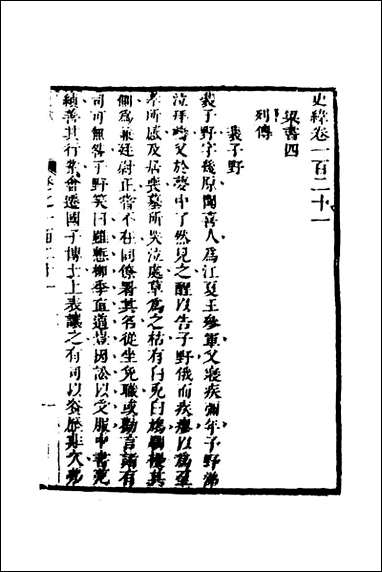 史緯卷一百二十一
梁書四
列傳
裴子野
裴子野字幾原聞喜人為江夏王參軍父寢疾彌年子野涕
泣拜禱父於夢中了然見之醒以告子野俄而疾瘳以為至
孝所感及居喪墓所哭泣處草為之枯有白兔白鳩馴擾其
側為兼廷尉正嘗不在同僚署其名從坐免職或勸言諸有
司可無咎子野笑曰雖慙柳季直道豈因訟以受服中書范
縝善其行業會遷國子博士上表讓之有司以資歷非次弗
卷之一百二十一 一